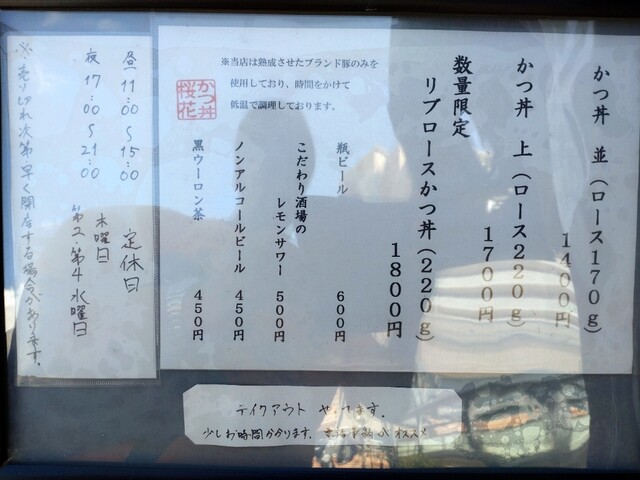 かつ丼 並（ロース170g）
1400円
かつ丼 上（ロース220g）
1700円
数量限定
リブロースかつ丼（220g）
1800円
※当店は熟成させたブランド豚のみを
使用しており、時間をかけて
低温で調理しております。
かつ丼
桜花
瓶ビール 600円
こだわり酒場の
レモンサワー 500円
ノンアルコールビール 450円
黒ウーロン茶 450円
昼 11:00～15:00 定休日
夜 17:00～21:00 木曜日
第2・第4 水曜日
※売り切れ次第早く閉店する場合があります。
テイクアウト やってます。
少しお時間かかります。予約がオススメ